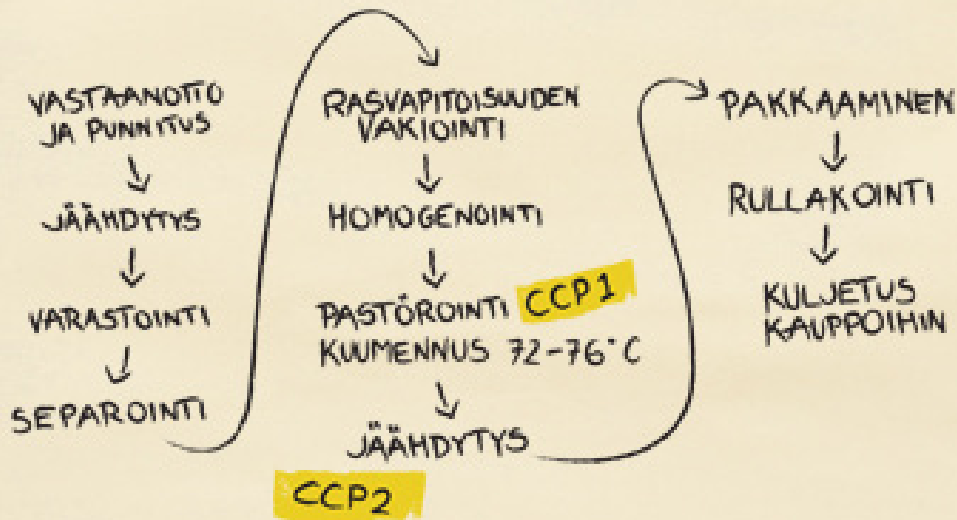 VASTAANOTTO
JA PUNNITUS
JÄÄHDYTYS
VARASTOINTI
SEPAROINTI
RASVAPITOISUUDEN
VAKIOINTI
HOMOGENOINTI
PASTÖROINTI CCP1
KUUMENNUS 72-76°C
JÄÄHDYTYS
CCP2
PAKKAAMINEN
RULLAKOINTI
KULJETUS
KAUPPOIHIN